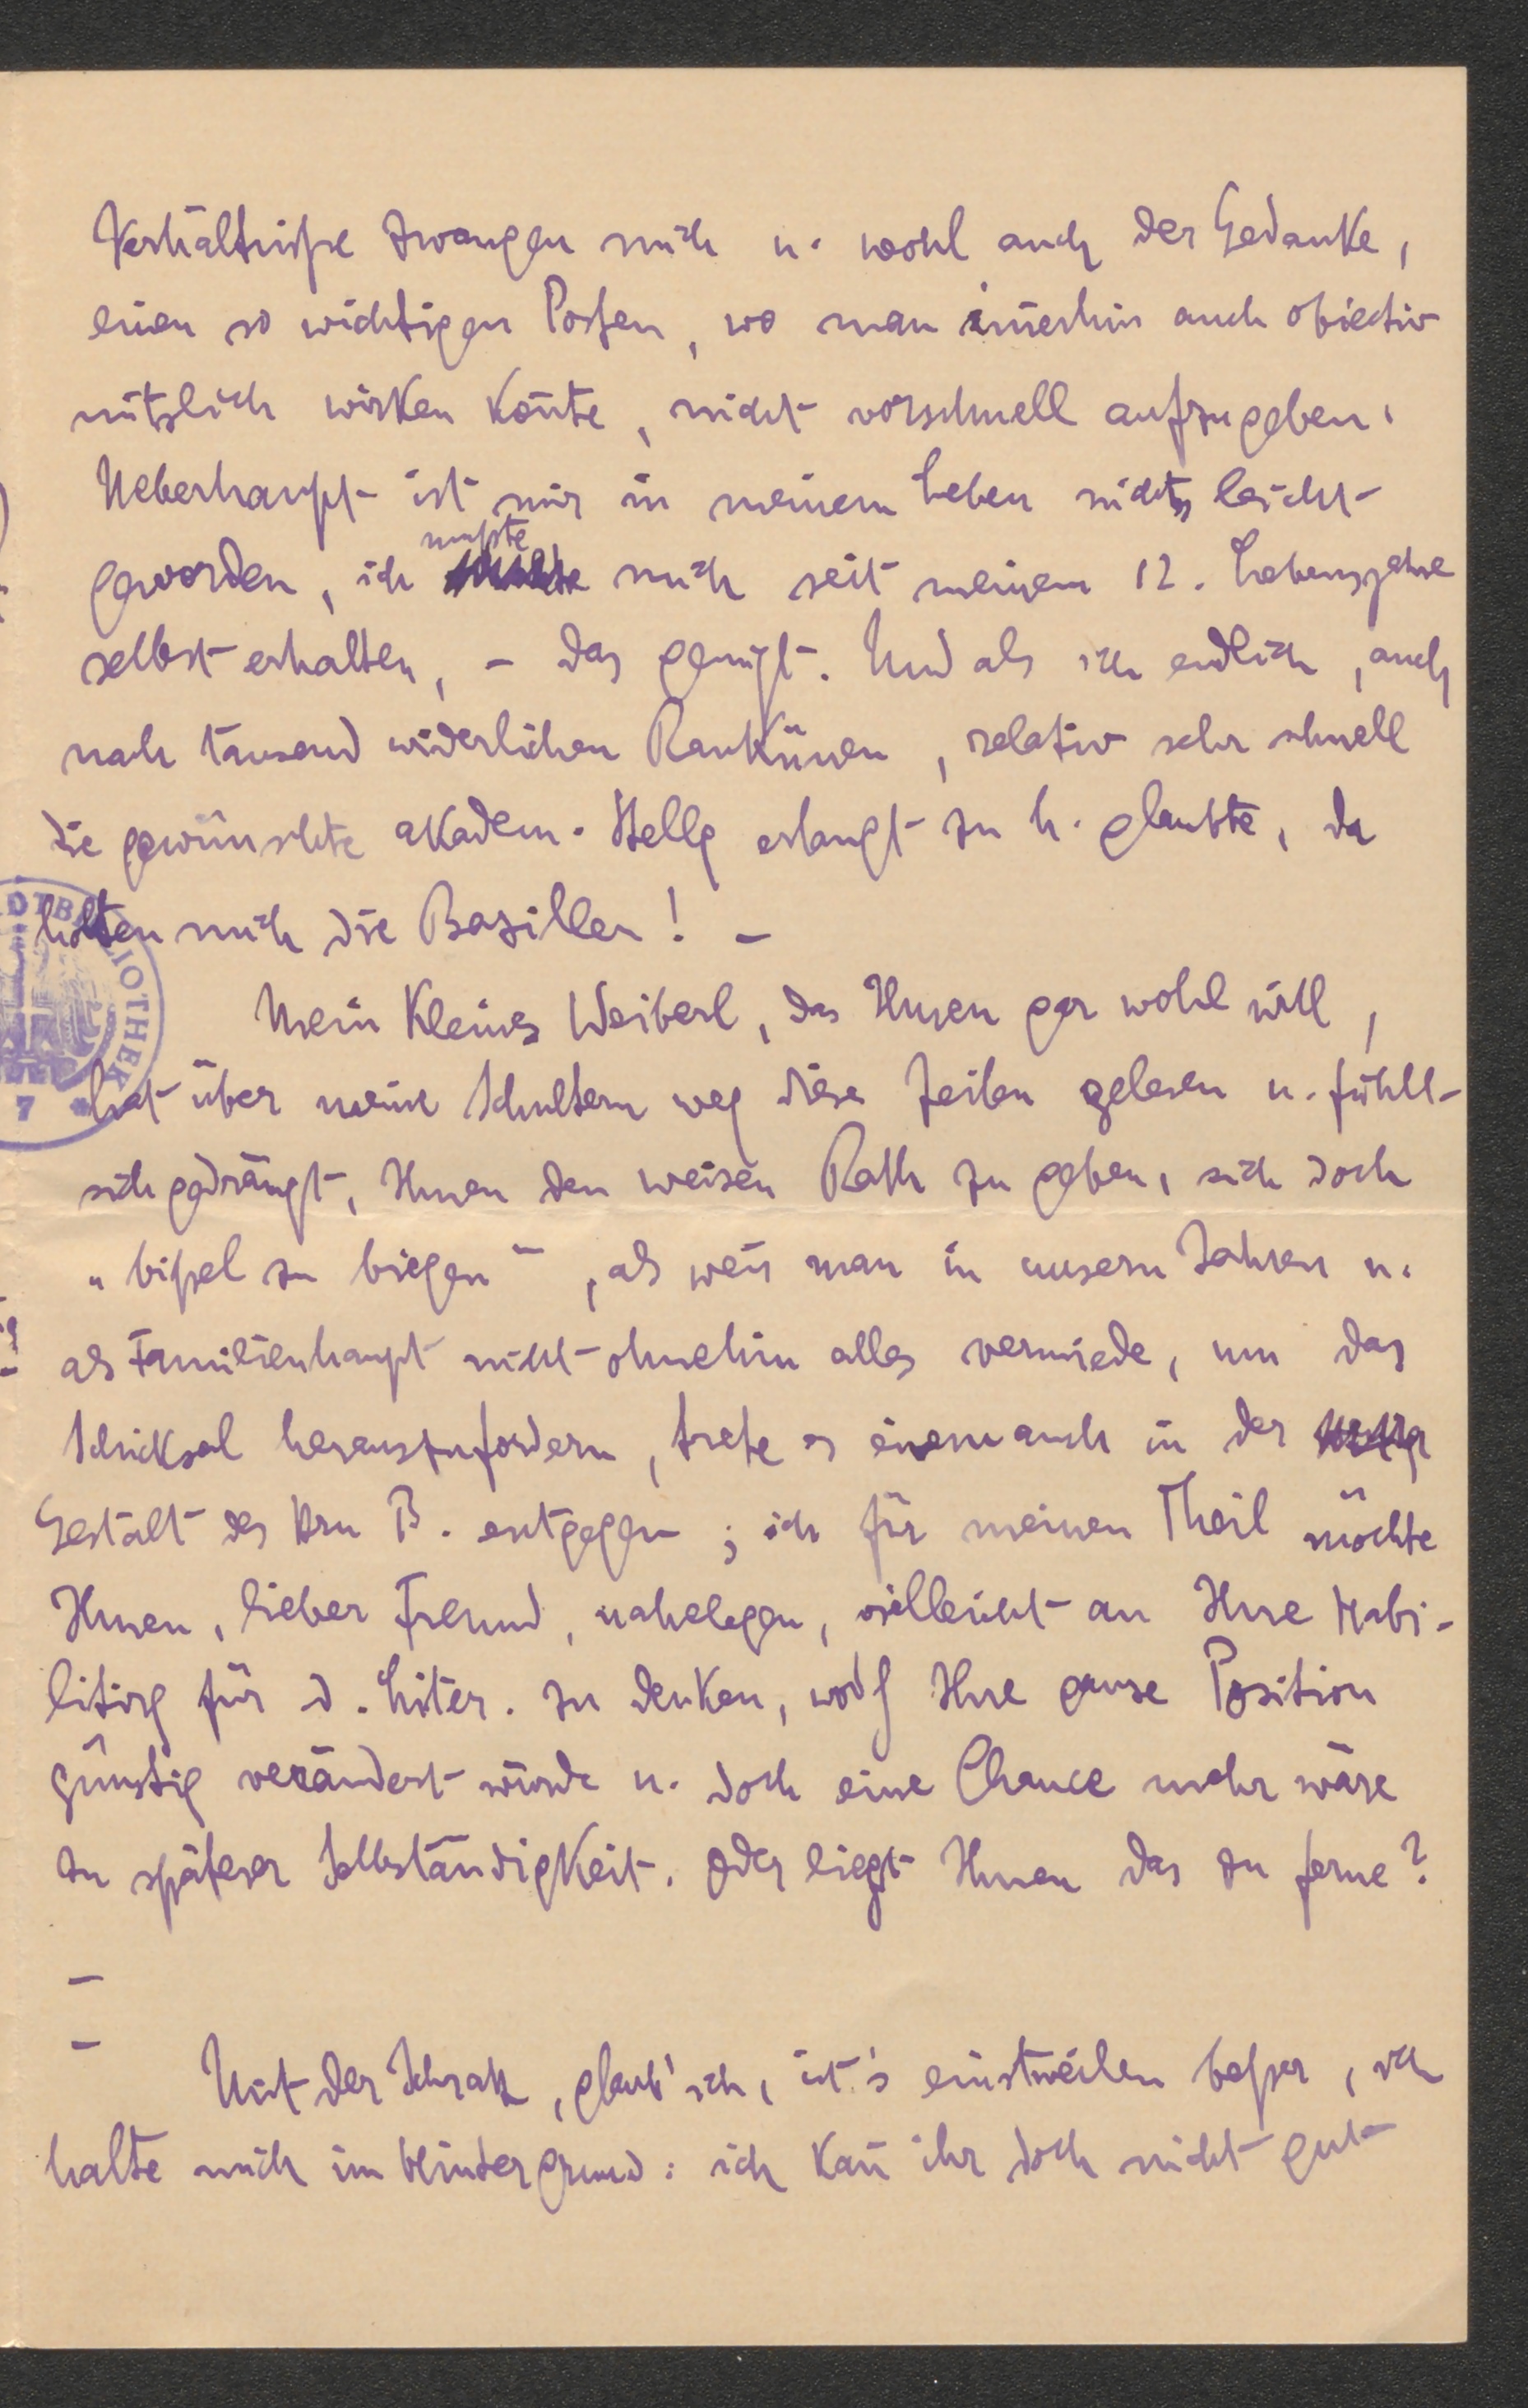 Verhältniße zwangen mich u. wohl auch der Gedanke,
einen so wichtigen Posten, wo man im̄erhin auch objectiv
nützlich wirken kon̄te, nicht vorschnell aufzugeben.
Ueberhaupt ist mir in meinem Leben nichts leicht
mußte
geworden, ich mich seit meinem 12. Lebensjahre
selbst erhalten, – das genügt. Und als ich endlich, auch
nach tausend widerlichen Rankünen, relativ sehr schnell
die gewünschte akadem. Stellg erlangt zu h. glaubte, da
holten mich die Bazillen! –
Mein kleines Weiberl, das Ihnen gar wohl will,
hat über meine Schultern weg diese Zeilen gelesen u. fühlt
sich gedrängt, Ihnen den weisen Rath zu geben, sich doch
„bißel zu biegen“, als wen̄ man in unsern Jahren u.
als Familienhaupt nicht ohnehin alles vermiede, um das
Schicksal herauszufordern, trete es einem auch in der
Gestalt des Hrn B. entgegen; ich für meinen Theil möchte
Ihnen, lieber Freund, nahelegen, vielleicht an Ihre Habi-
litirg für d. Liter. zu denken, wodurch Ihre ganze Position
günstig verändert würde u. doch eine Chance mehr wäre
zu späterer Selbständigkeit. Oder liegt Ihnen das zu ferne?
–
– Mit der Schratt, glaub' ich, ist's einstweilen beßer, ich
halte mich im Hintergrund: ich kan̄ ihr doch nicht gut
DTBIBLIOTHEK
7 *